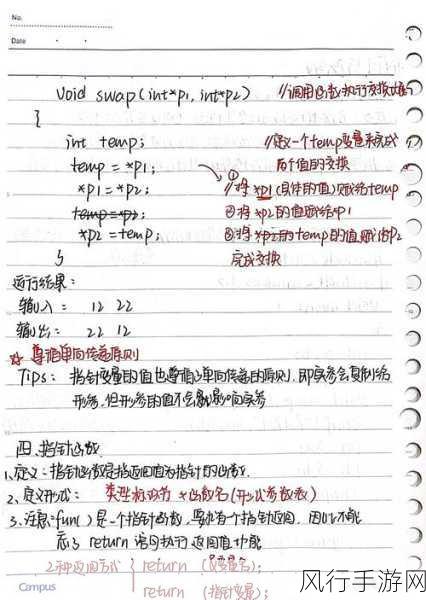 No.
Date
void swap(int*p1, int*p2) //调用函数执行交换
{
int temp; //定义一个temp变量来完成
temp = *p1; 两个值的交换
*p1 = *p2; ①//将*p1(具体的值)赋给temp
temp=*p2; ②将*p2的值赋给*p1
*p2 = temp; ③将*p2的temp的值赋给p2
} 完成交换
运行结果:
输入: 12 22
输出: 22 12
☆ 遵循单向传递原则
Tips: 指针变量的值也遵循单向传递的原则,即实参会复制给
形参,但形参的值不会影响实参
四.指针函数
1、定义:指针函数是指返回值为指针的函数.
2、定义形式: 类型标识符 *函数名(形式参数表)
3、注意:fun()是一个指针函数,要求有个指针返回,因此不能
return语句执行返回值功能
2种返回方式 { return (&变量名);
return (指针变量);
Campus
风行手游网